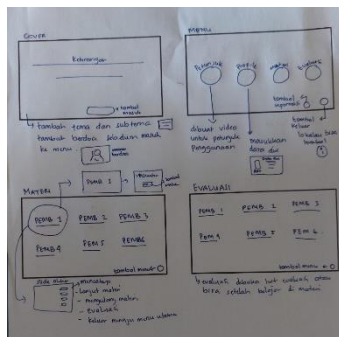 COVER
Keterangan
tombol masuk
tambah tema dan subtema
tambah berdoa sebelum masuk
ke menu
MENU
Petunjuk
Profil
materi
Evaluasi
tombol
tombol keluar
dibuat video
untuk petunjuk
penggunaan
masukkan
data diri
MATERI
PEMB 1
PEMB 1 PEMB 2 PEMB 3
PEMB 4 PEM 5 PEMB 6
tombol menu
- lanjut materi
- mengulang materi
- evaluasi
- keluar menuju menu utama
EVALUASI
PEMB 1 PEMB 2 PEMB 3
PEM 4 PEMB 5 PEM 6
tombol menu
bisa setelah belajar di materi